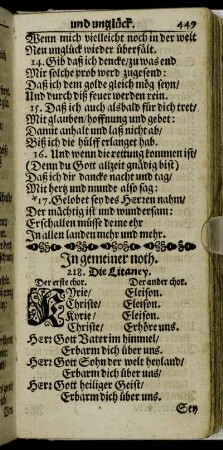 und unglück. 449
Wenn mich vielleicht noch in der welt
Neu unglück wieder überfält.
14. Gib daß ich dencke/zu was end
Mir solche prob werd zugesend:
Daß ich dem golde gleich mög seyn/
Und durch diß feuer werden rein.
15. Daß ich auch alsbald für dich tret/
Mit glauben/hoffnung und gebet:
Damit anhalt und laß nicht ab/
Biß ich die hülff erlanget hab.
16. Und wenn die rettung kommen ist/
(Denn du Gott allzeit gnädig bist)
Daß ich dir dancke nacht und tag/
Mit hertz und munde also sag:
*17. Gelobet sey des Herzen nahm/
Der mächtig ist und wundersam:
Erschallen müsse deine ehr
In allen landen mehr und mehr.
In gemeiner noth.
218. Die Litaney.
Der erste chor. Der ander chor.
Kyrie/ Eleison.
Christe/ Eleison.
Kyrie/ Eleison.
Christe/ Erhöre uns.
Herr Gott Vater im himmel/
Erbarm dich über uns.
Herr Gott Sohn der welt heyland/
Erbarm dich über uns/
Herr Gott heiliger Geist/
Erbarm dich über uns.
Sey